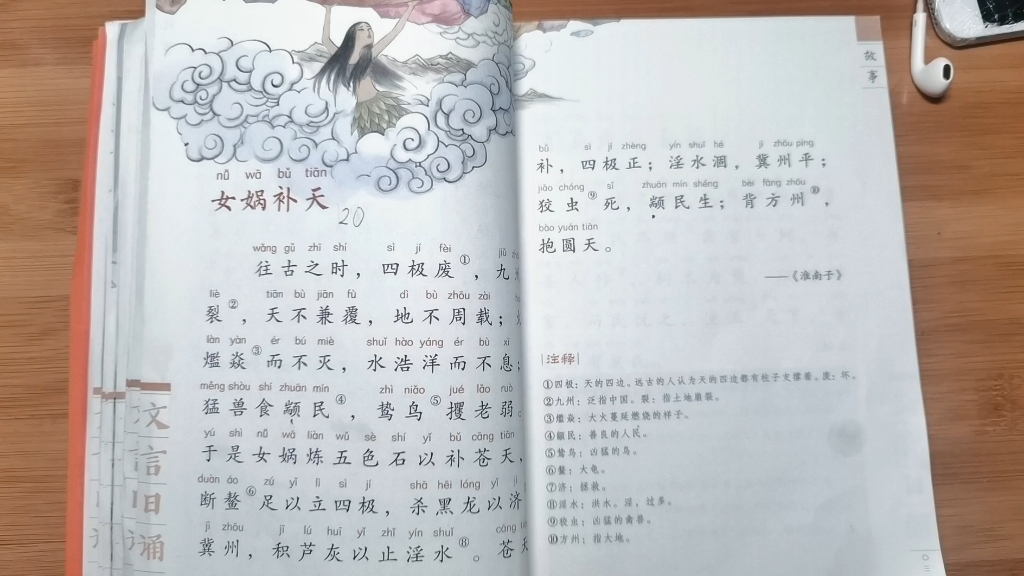 nǚ wā bǔ tiān
女娲补天
20
wǎng gǔ zhī shí sì jí fèi jiǔ
往古之时，四极废①，九
liè tiān bù jiān fù dì bù zhōu zài
裂②，天不兼覆，地不周载；
làn yàn ér bú miè shuǐ hào yáng ér bù xī
爁焱③而不灭，水浩洋而不息；
měng shòu shí zhuān mín zhì niǎo jué lǎo ruò
猛兽食颛民④，鸷鸟⑤攫老弱。
yú shì nǚ wā liàn wǔ sè shí yǐ bǔ cāng tiān
于是女娲炼五色石以补苍天，
duàn áo zú yǐ lì sì jí shā hēi lóng yǐ jì
断鳌⑥足以立四极，杀黑龙以济
jì zhōu jī lú huī yǐ zhǐ yín shuǐ cāng
冀州，积芦灰以止淫水⑧。苍
文言旧诵
故事
bǔ sì jí zhèng yín shuǐ hé jì zhōu píng
补，四极正；淫水涸，冀州平；
jiǎo chóng sǐ zhuān mín shēng bèi fāng zhōu
狡虫⑨死，颛民生；背方州⑩，
bào yuán tiān
抱圆天。
——《淮南子》
注释
①四极：天的四边。远古的人认为天的四边都有柱子支撑着。废：坏。
②九州：泛指中国。裂：指土地崩裂。
③爁焱：大火蔓延燃烧的样子。
④颛民：善良的人民。
⑤鸷鸟：凶猛的鸟。
⑥鳌：大龟。
⑦济：拯救。
⑧淫水：洪水。淫，过多。
⑨狡虫：凶猛的禽兽。
⑩方州：指大地。